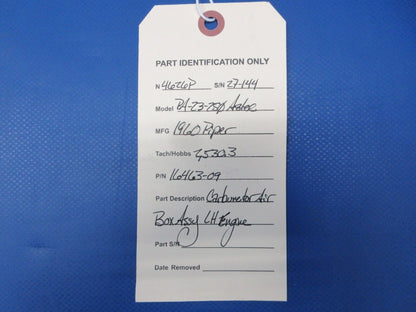 PART IDENTIFICATION ONLY
N 4626P S/N 27-144
Model PA-23-250 Aztec
MFG 1960 Piper
Tach/Hobbs 2530.3
P/N 16463-09
Part Description Carburetor Air
Box Assy LH Engine
Part S/N
Date Removed